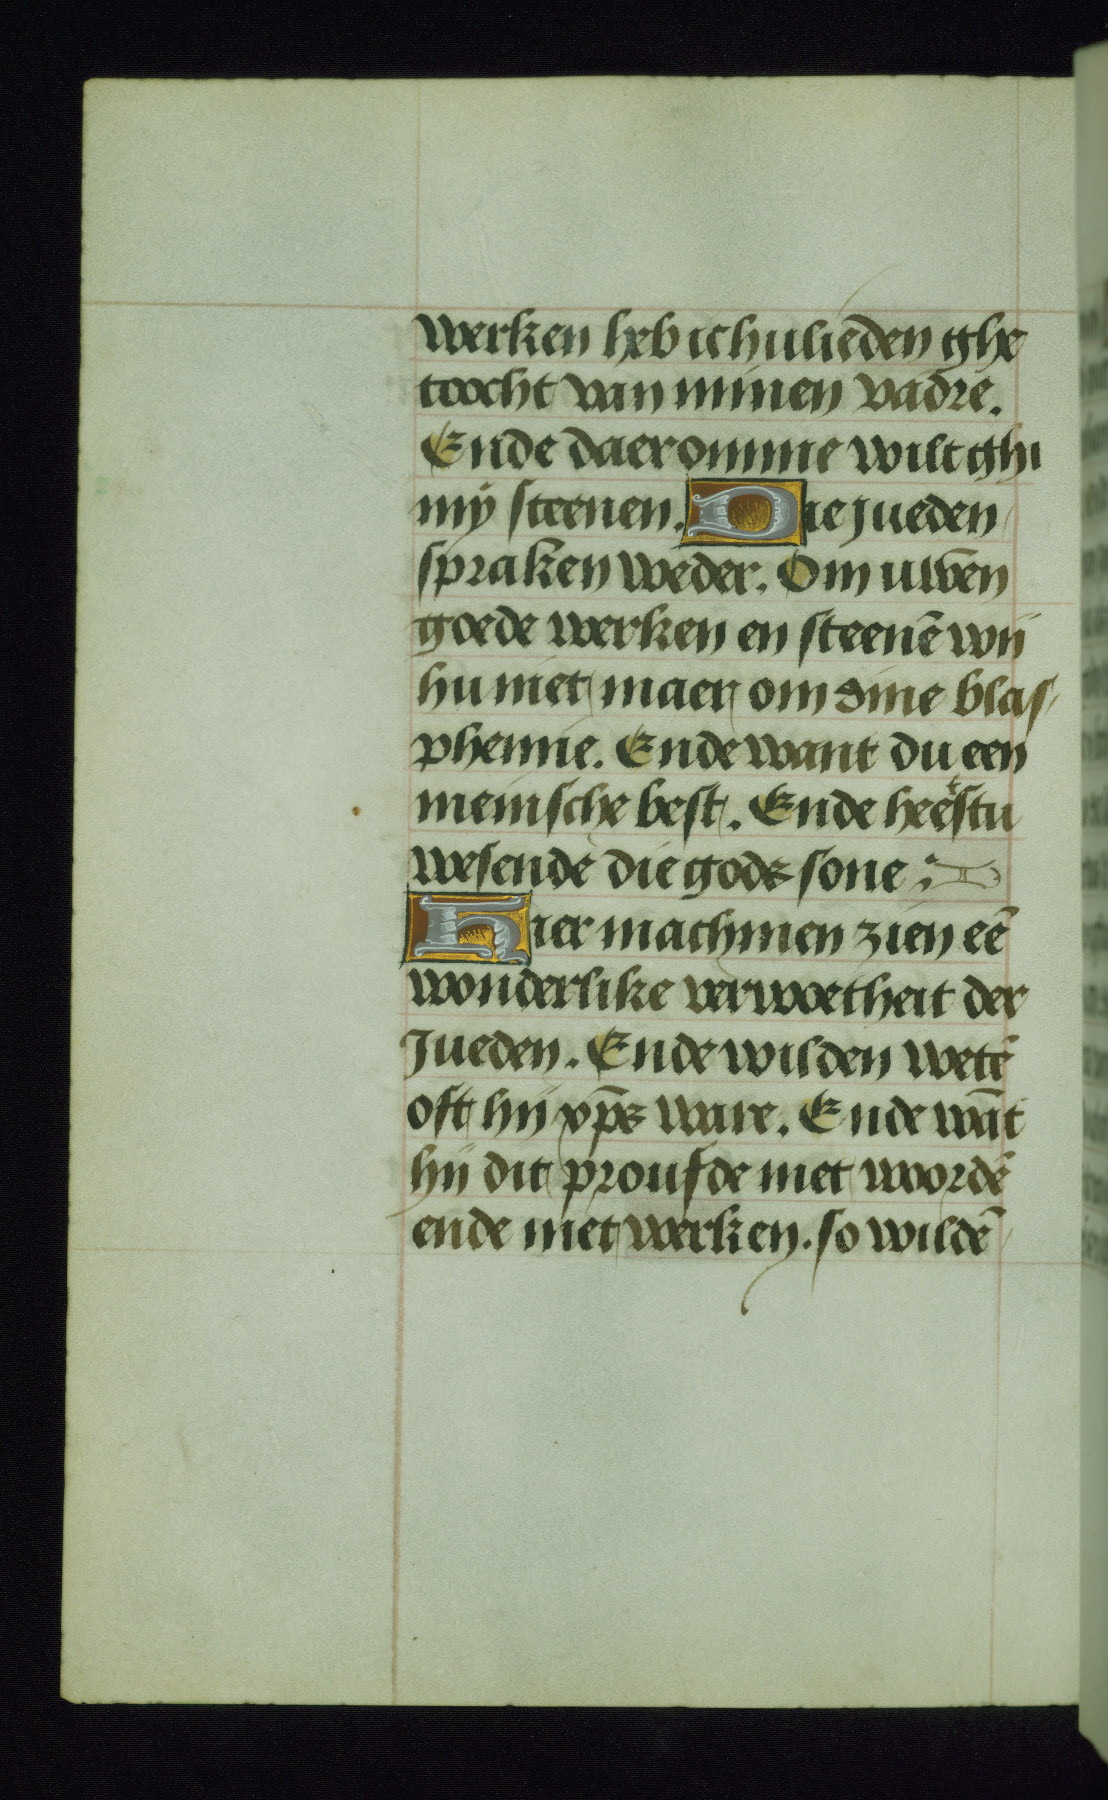 werken heb ic hulieden ghe
toocht van minen vadre.
Ende daeromme wilt ghi
mÿ steenen. Die jueden
spraken weder. Om uwen
goede werken en steenē wij
hu niet maer om dine blas
phemie. Ende want du een
meinsche best. Ende heetstu
wesende die gods sone :
Hier machmen zien eē
wonderlike verwoetheit der
Jueden. Ende wilden wetē
oft hij xp̄s ware. Ende wāt
hij dit proufde met woordē
ende met werken. so wildē